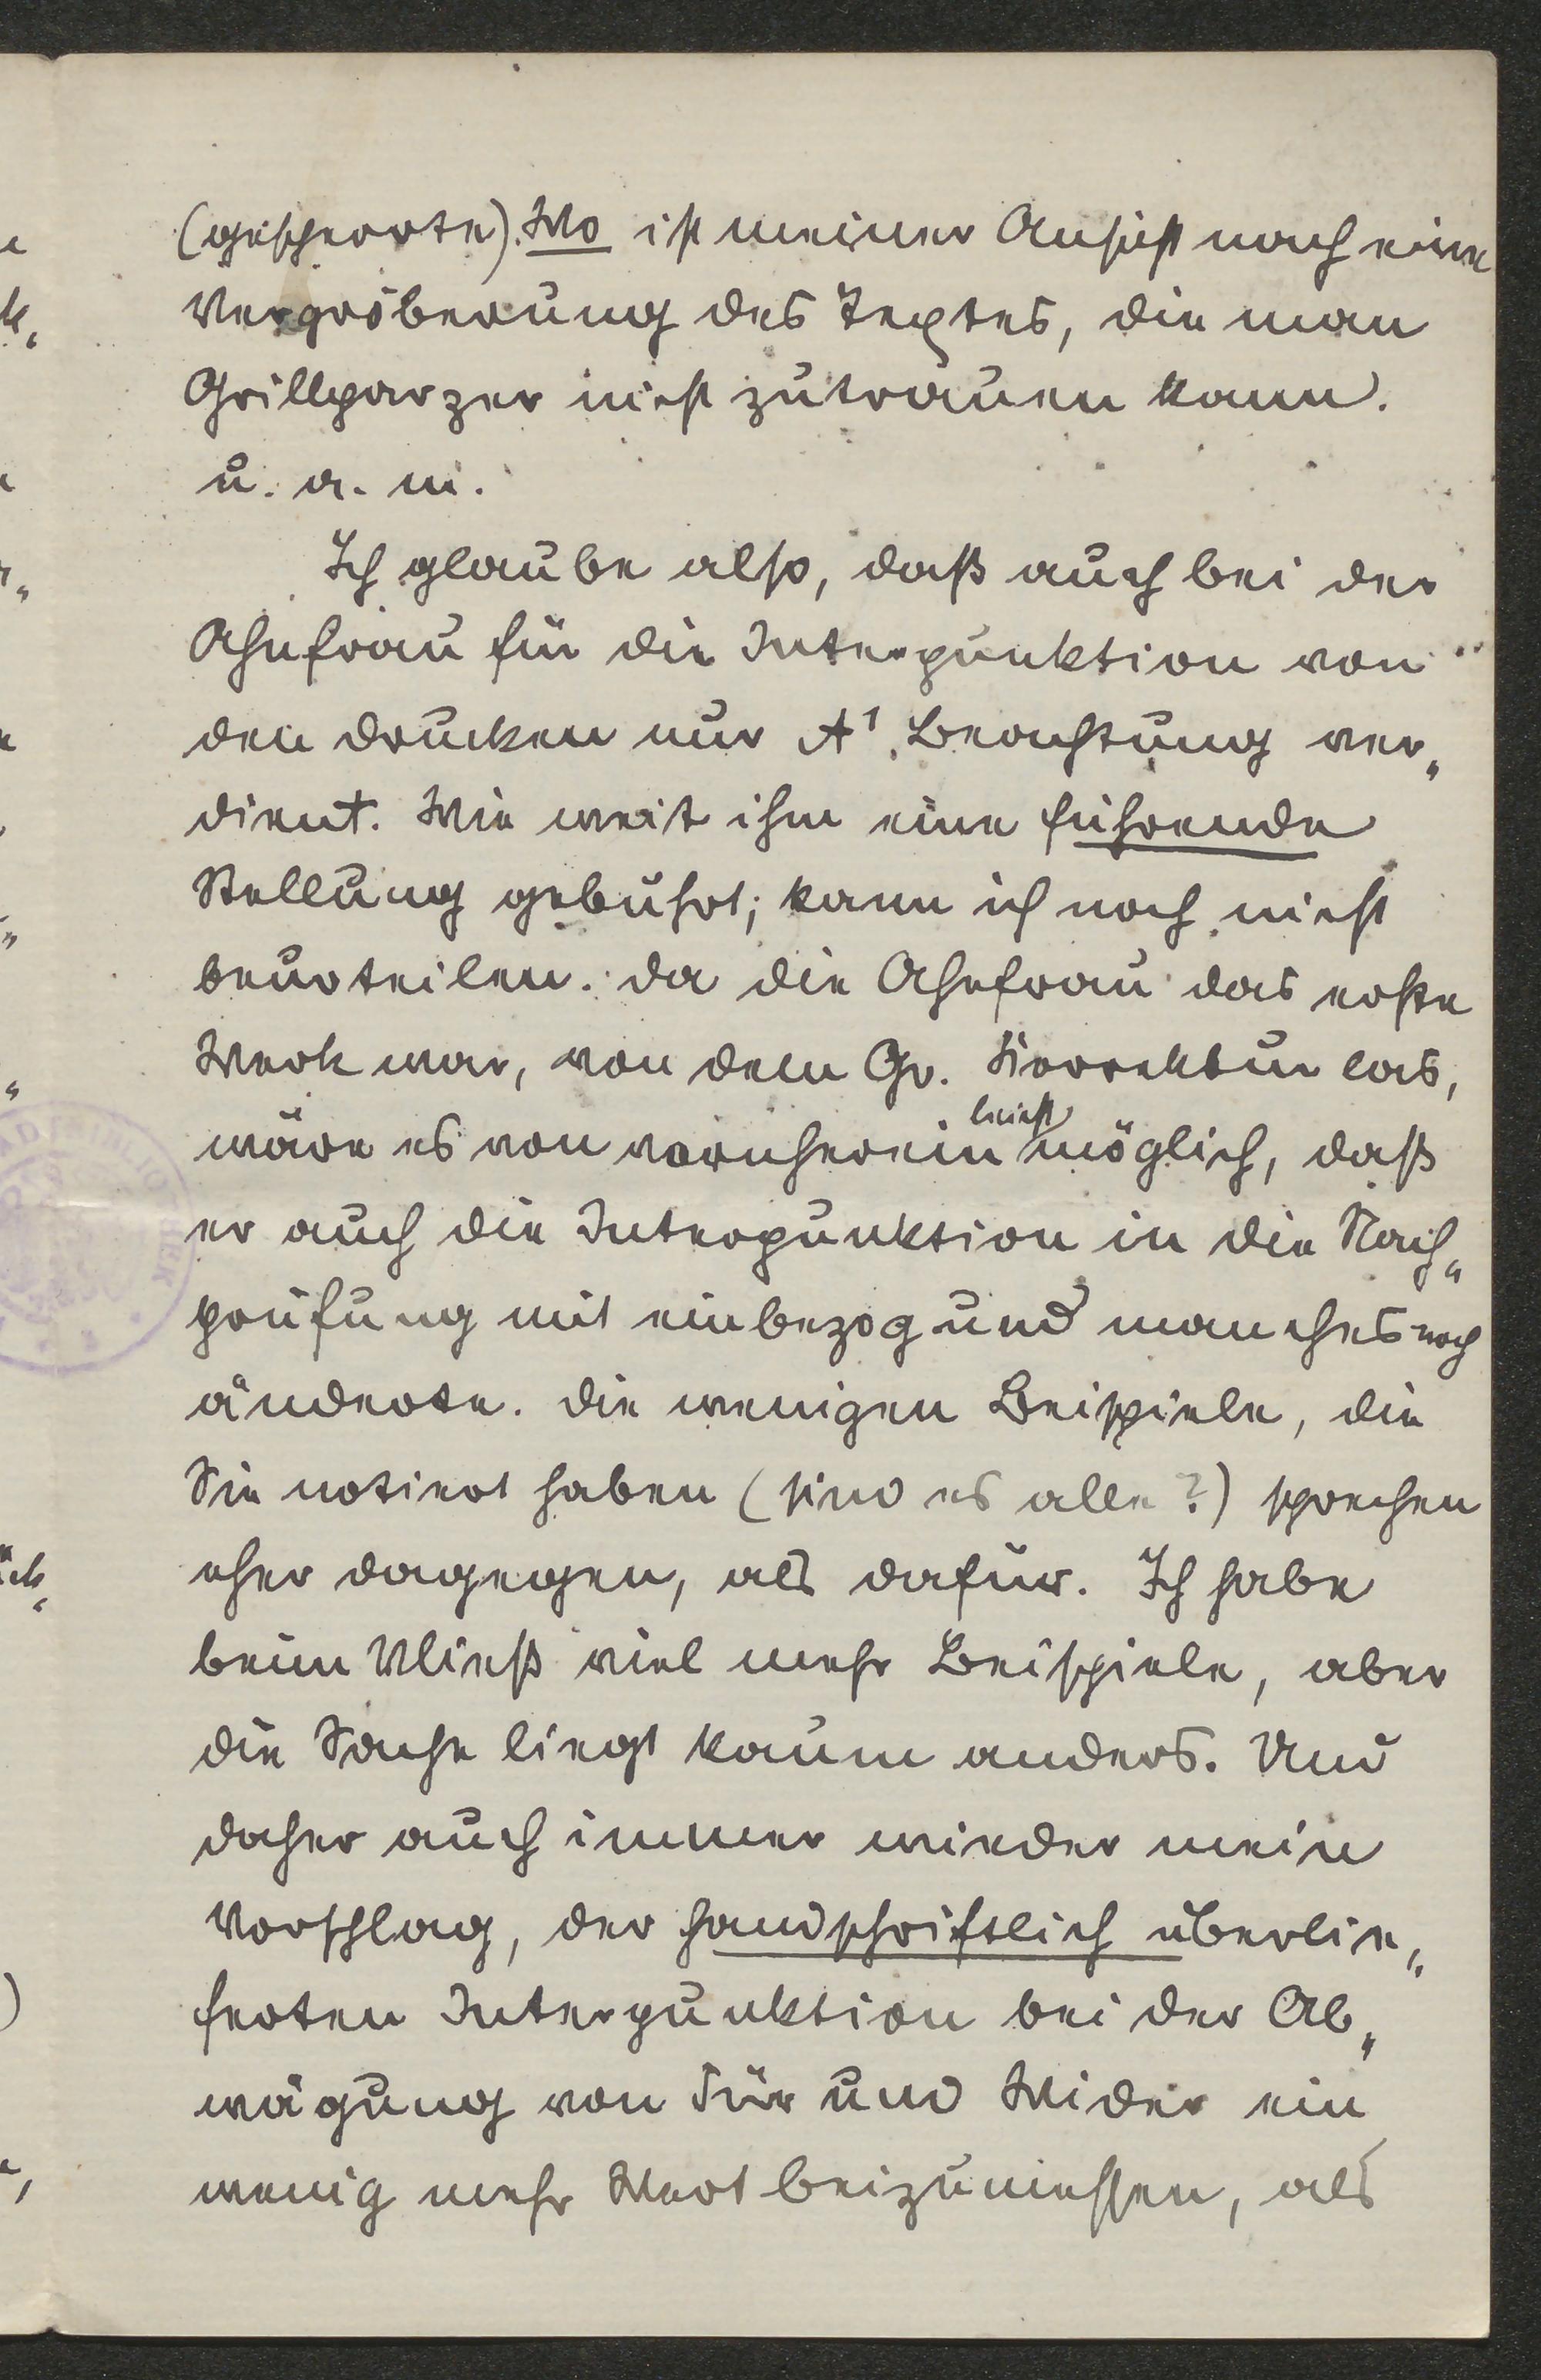 (gesperrte). Wo ist meiner Ansicht nach eine
Vergröberung des Textes, die man
Grillparzer nicht zutrauen kann.
u. a. m.
Ich glaube also, daß auch bei der
Ahnfrau für die Interpunktion von
den Drucken nur A¹ Beachtung ver„
dient. Wie weit ihm eine führende
Stellung gebührt; kann ich noch nicht
beurteilen. Da die Ahnfrau das erste
Werk war, von dem Gr. Korrektur las,
leicht
wäre es von vornherein möglich, daß
er auch die Interpunktion in die Nach„
prüfung mit einbezog und manches noch
änderte. Die wenigen Beispiele, die
Sie notiert haben (sind es alle?) sprechen
eher dagegen, als dafür. Ich habe
beim Vließ viel mehr Beispiele, aber
die Sache liegt kaum anders. Und
daher auch immer wieder mein
Vorschlag, der handschriftlich überlie„
ferten Interpunktion bei der Ab„
wägung von Für und Wider ein
wenig mehr Wert beizumessen, als